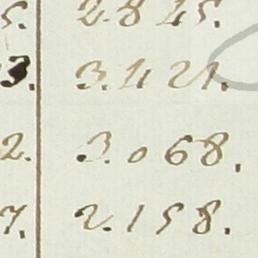 5. 2.845.
3. 3.421.
2. 3.068.
7. 2.158.